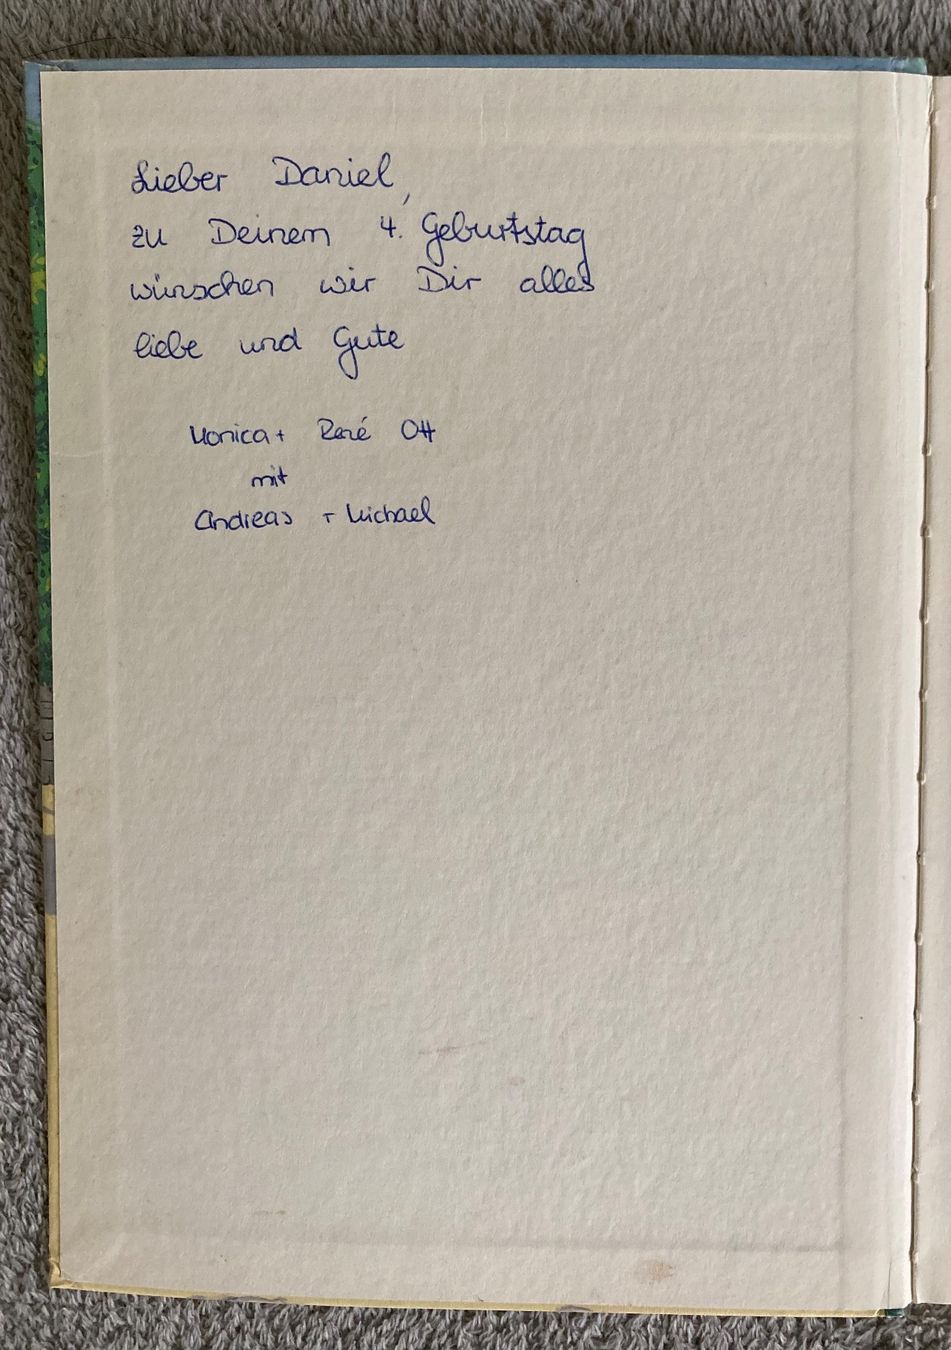 Lieber Daniel,
zu Deinem 4. Geburtstag
wünschen wir Dir alles
liebe und Gute
Monica + René Ott
mit
Andreas + Michael